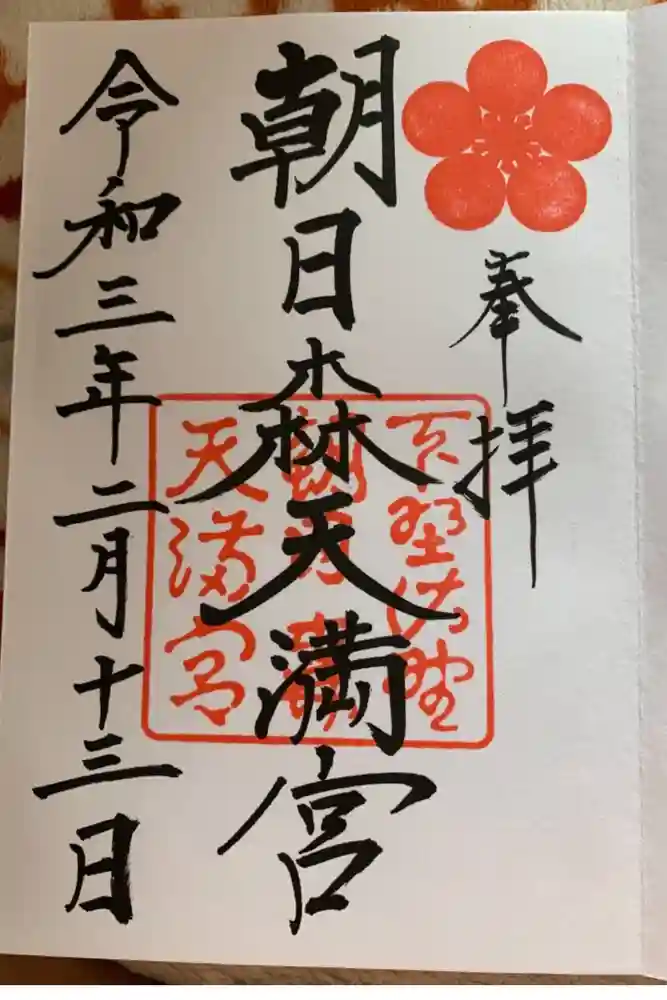 奉拝
朝日森天満宮
令和三年二月十三日
下野佐野
天満宮